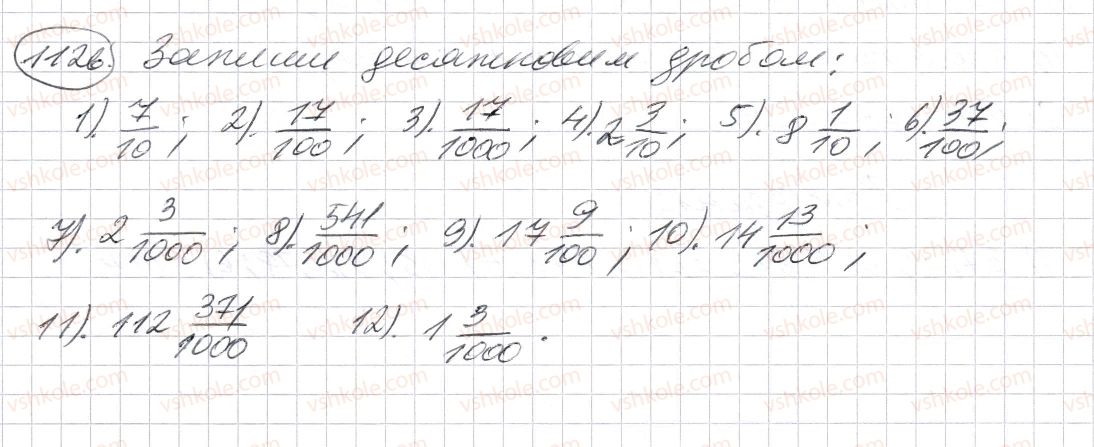 1126. Запиши десятковим дробом:
1). 7/10; 2). 17/100; 3). 17/1000; 4). 2 3/10; 5). 8 1/10; 6). 37/100;
7). 2 3/1000; 8). 541/1000; 9). 17 9/100; 10). 14 13/1000;
11). 112 371/1000 12). 1 3/1000.